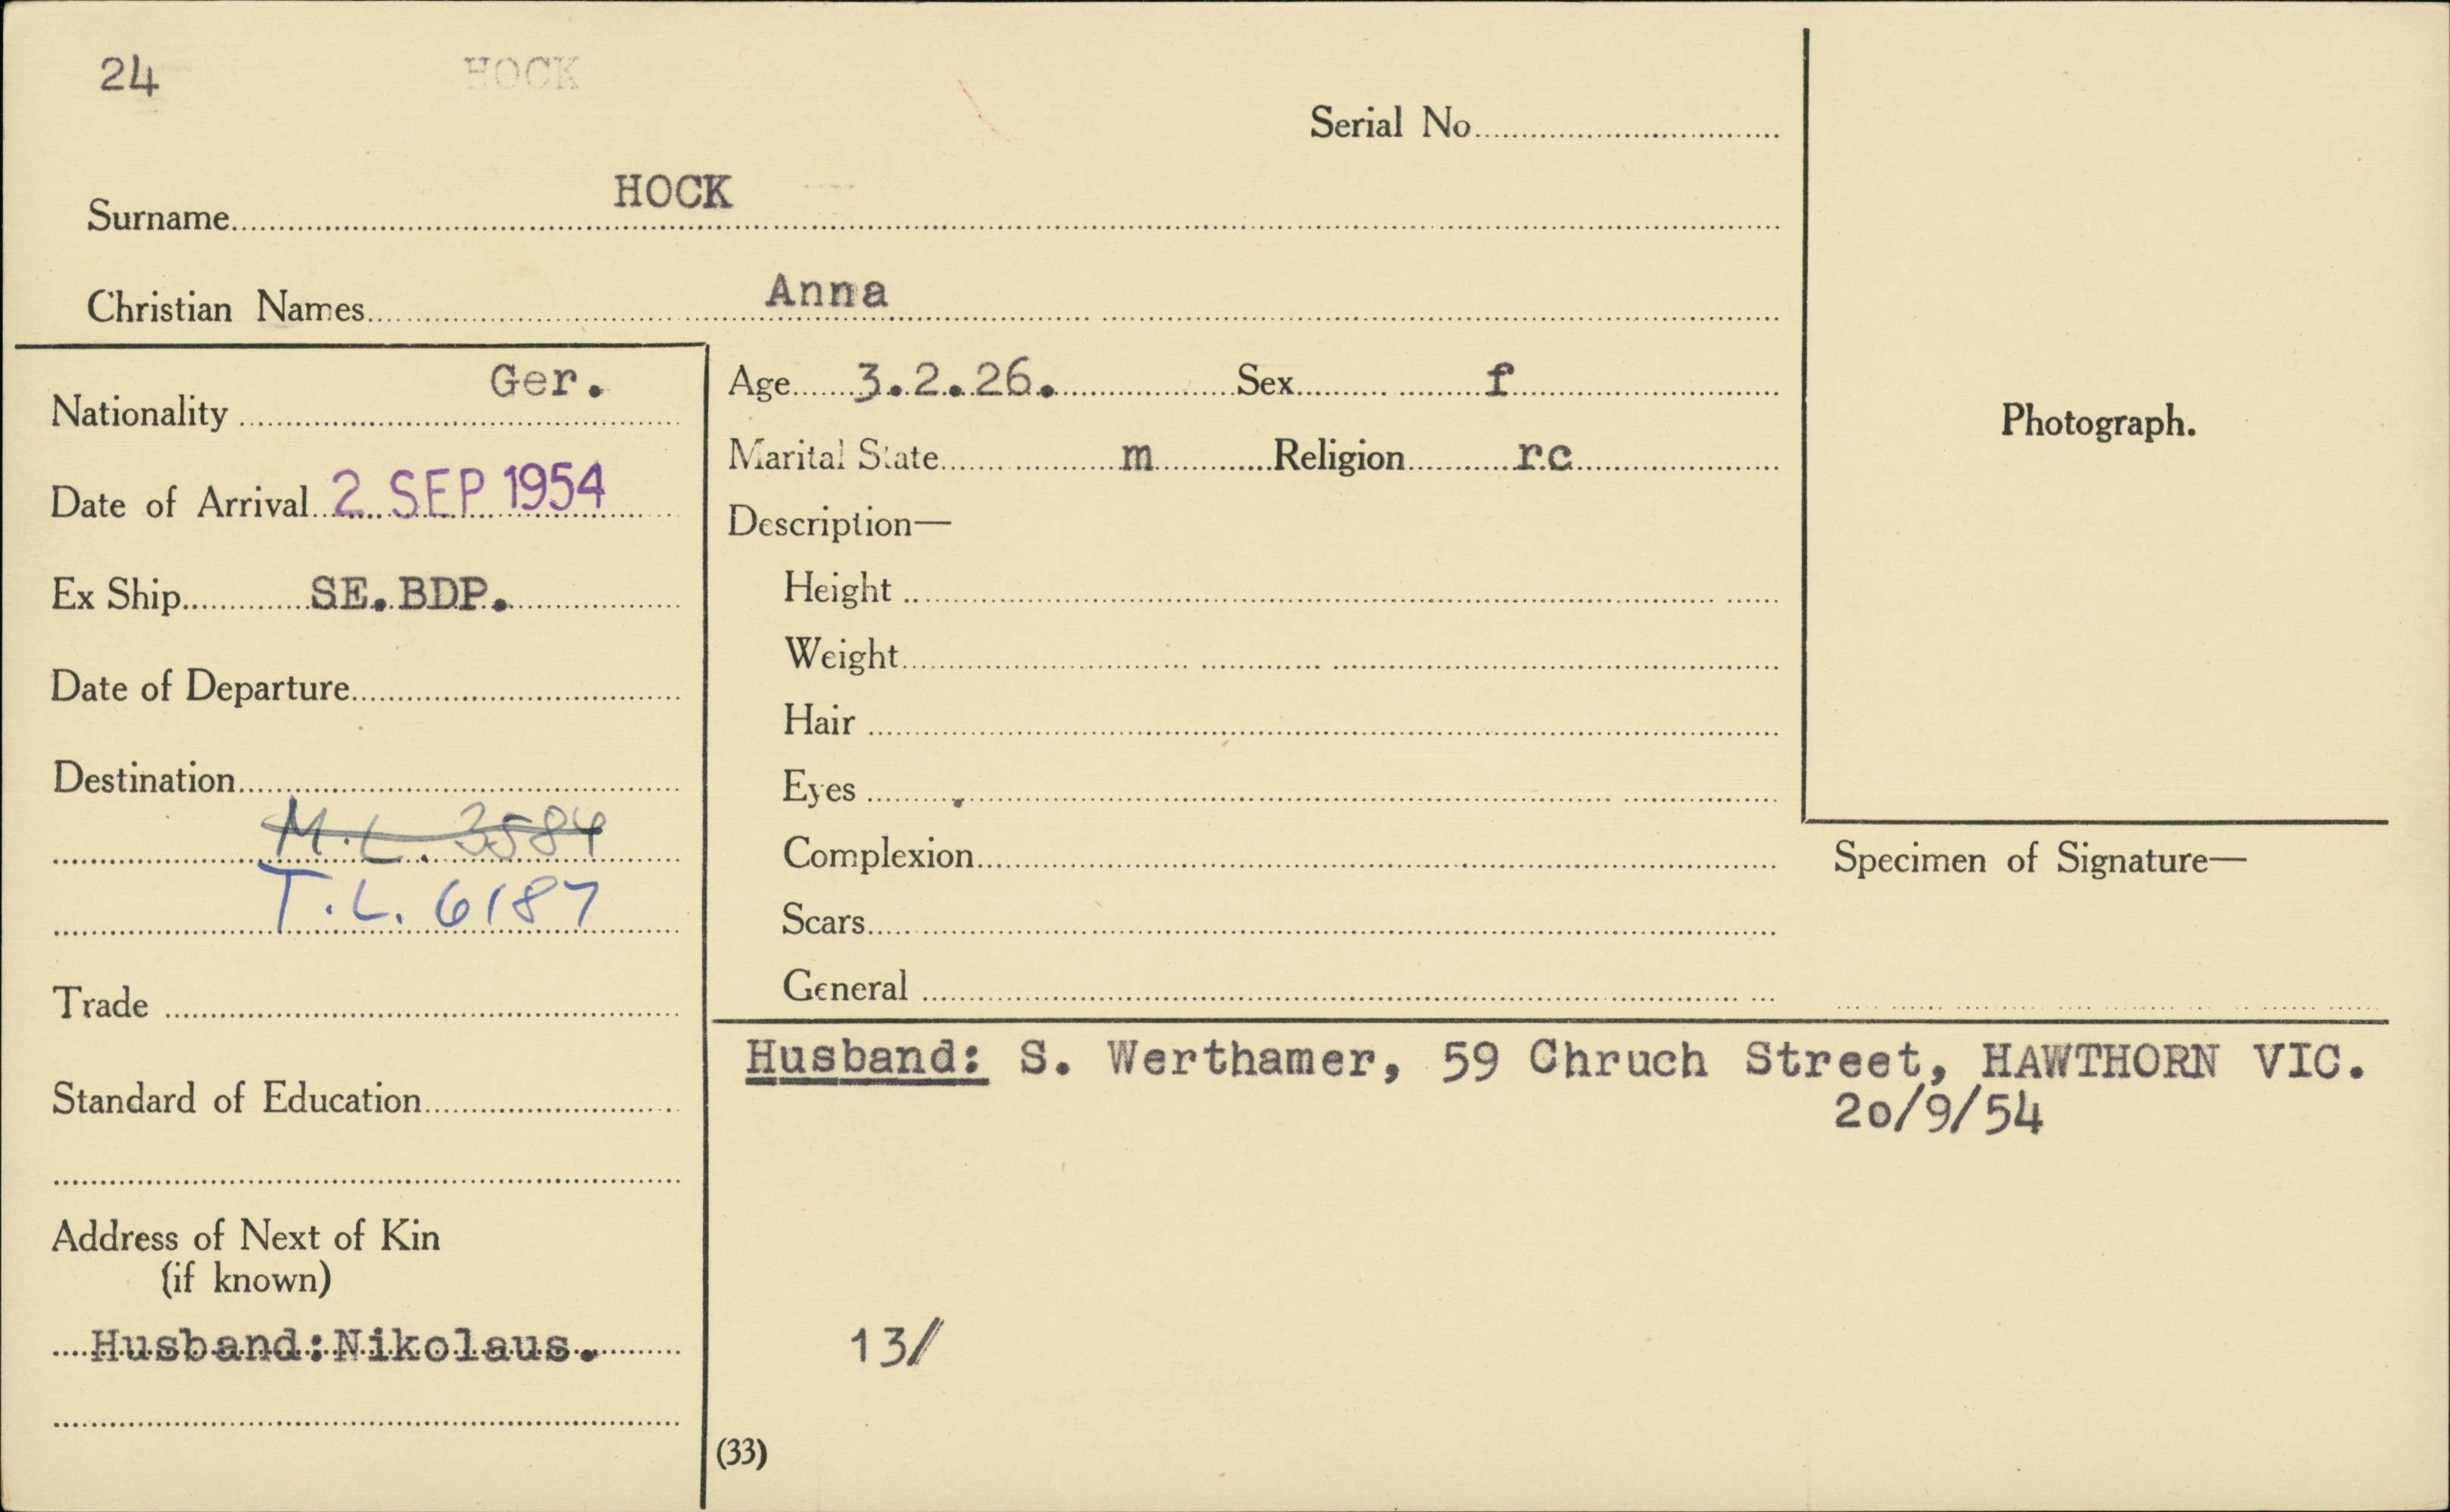 24 HOCK
Serial No
Surname HOCK
Christian Names Anna
Nationality Ger.
Date of Arrival 2 SEP 1954
Ex Ship SE.BDP.
Date of Departure
Destination
M.L. 3584
T.L. 6187
Trade
Standard of Education
Address of Next of Kin
(if known)
Husband:Nikolaus.
Age 3.2.26. Sex f
Marital State m Religion rc
Description—
Height
Weight
Hair
Eyes
Complexion
Scars
General
Photograph.
Specimen of Signature—
Husband: S. Werthamer, 59 Chruch Street, HAWTHORN VIC.
20/9/54
13/
(33)